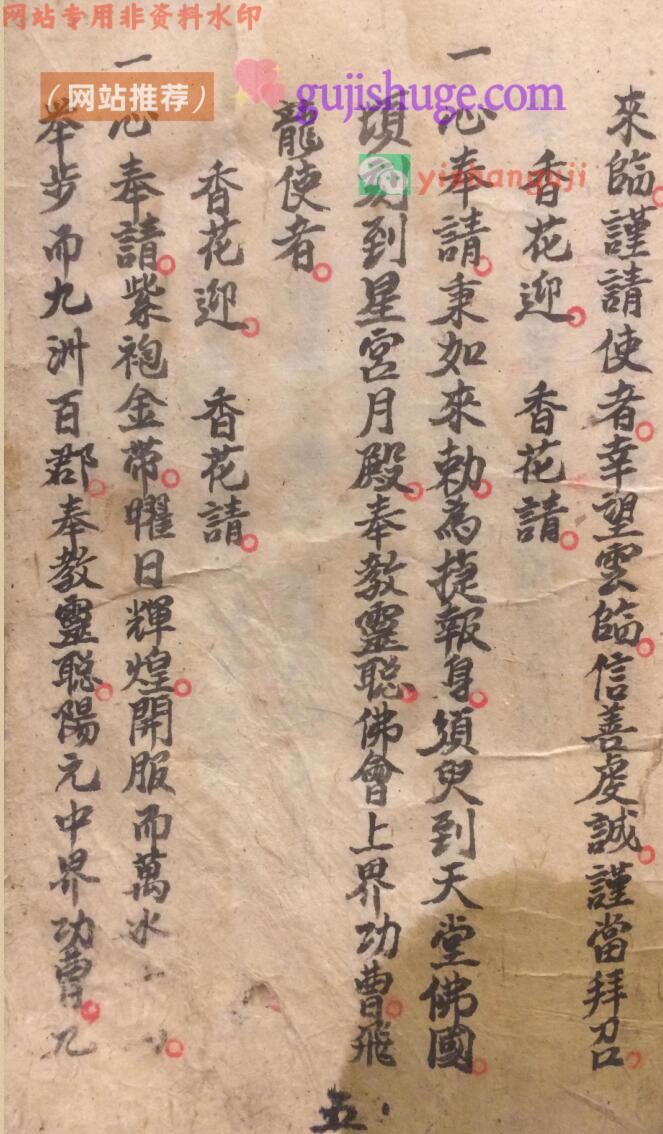 网站专用非资料水印
(网站推荐)
gujishuge.com
yishanguji
來臨。謹請使者。幸望雲臨。信善虔誠。謹當拜召。
香花迎。 香花請。
一心奉請。秉如來勅。為捷報身。須臾到天堂佛國。
頃刻到星宮月殿。奉教靈聰。佛會上界功曹。飛
龍使者。
香花迎。 香花請。
一心奉請。紫袍金帶。曜日輝煌。開服而萬水
举步而九洲百郡。奉教靈聪。陽元中界功曹。九
五